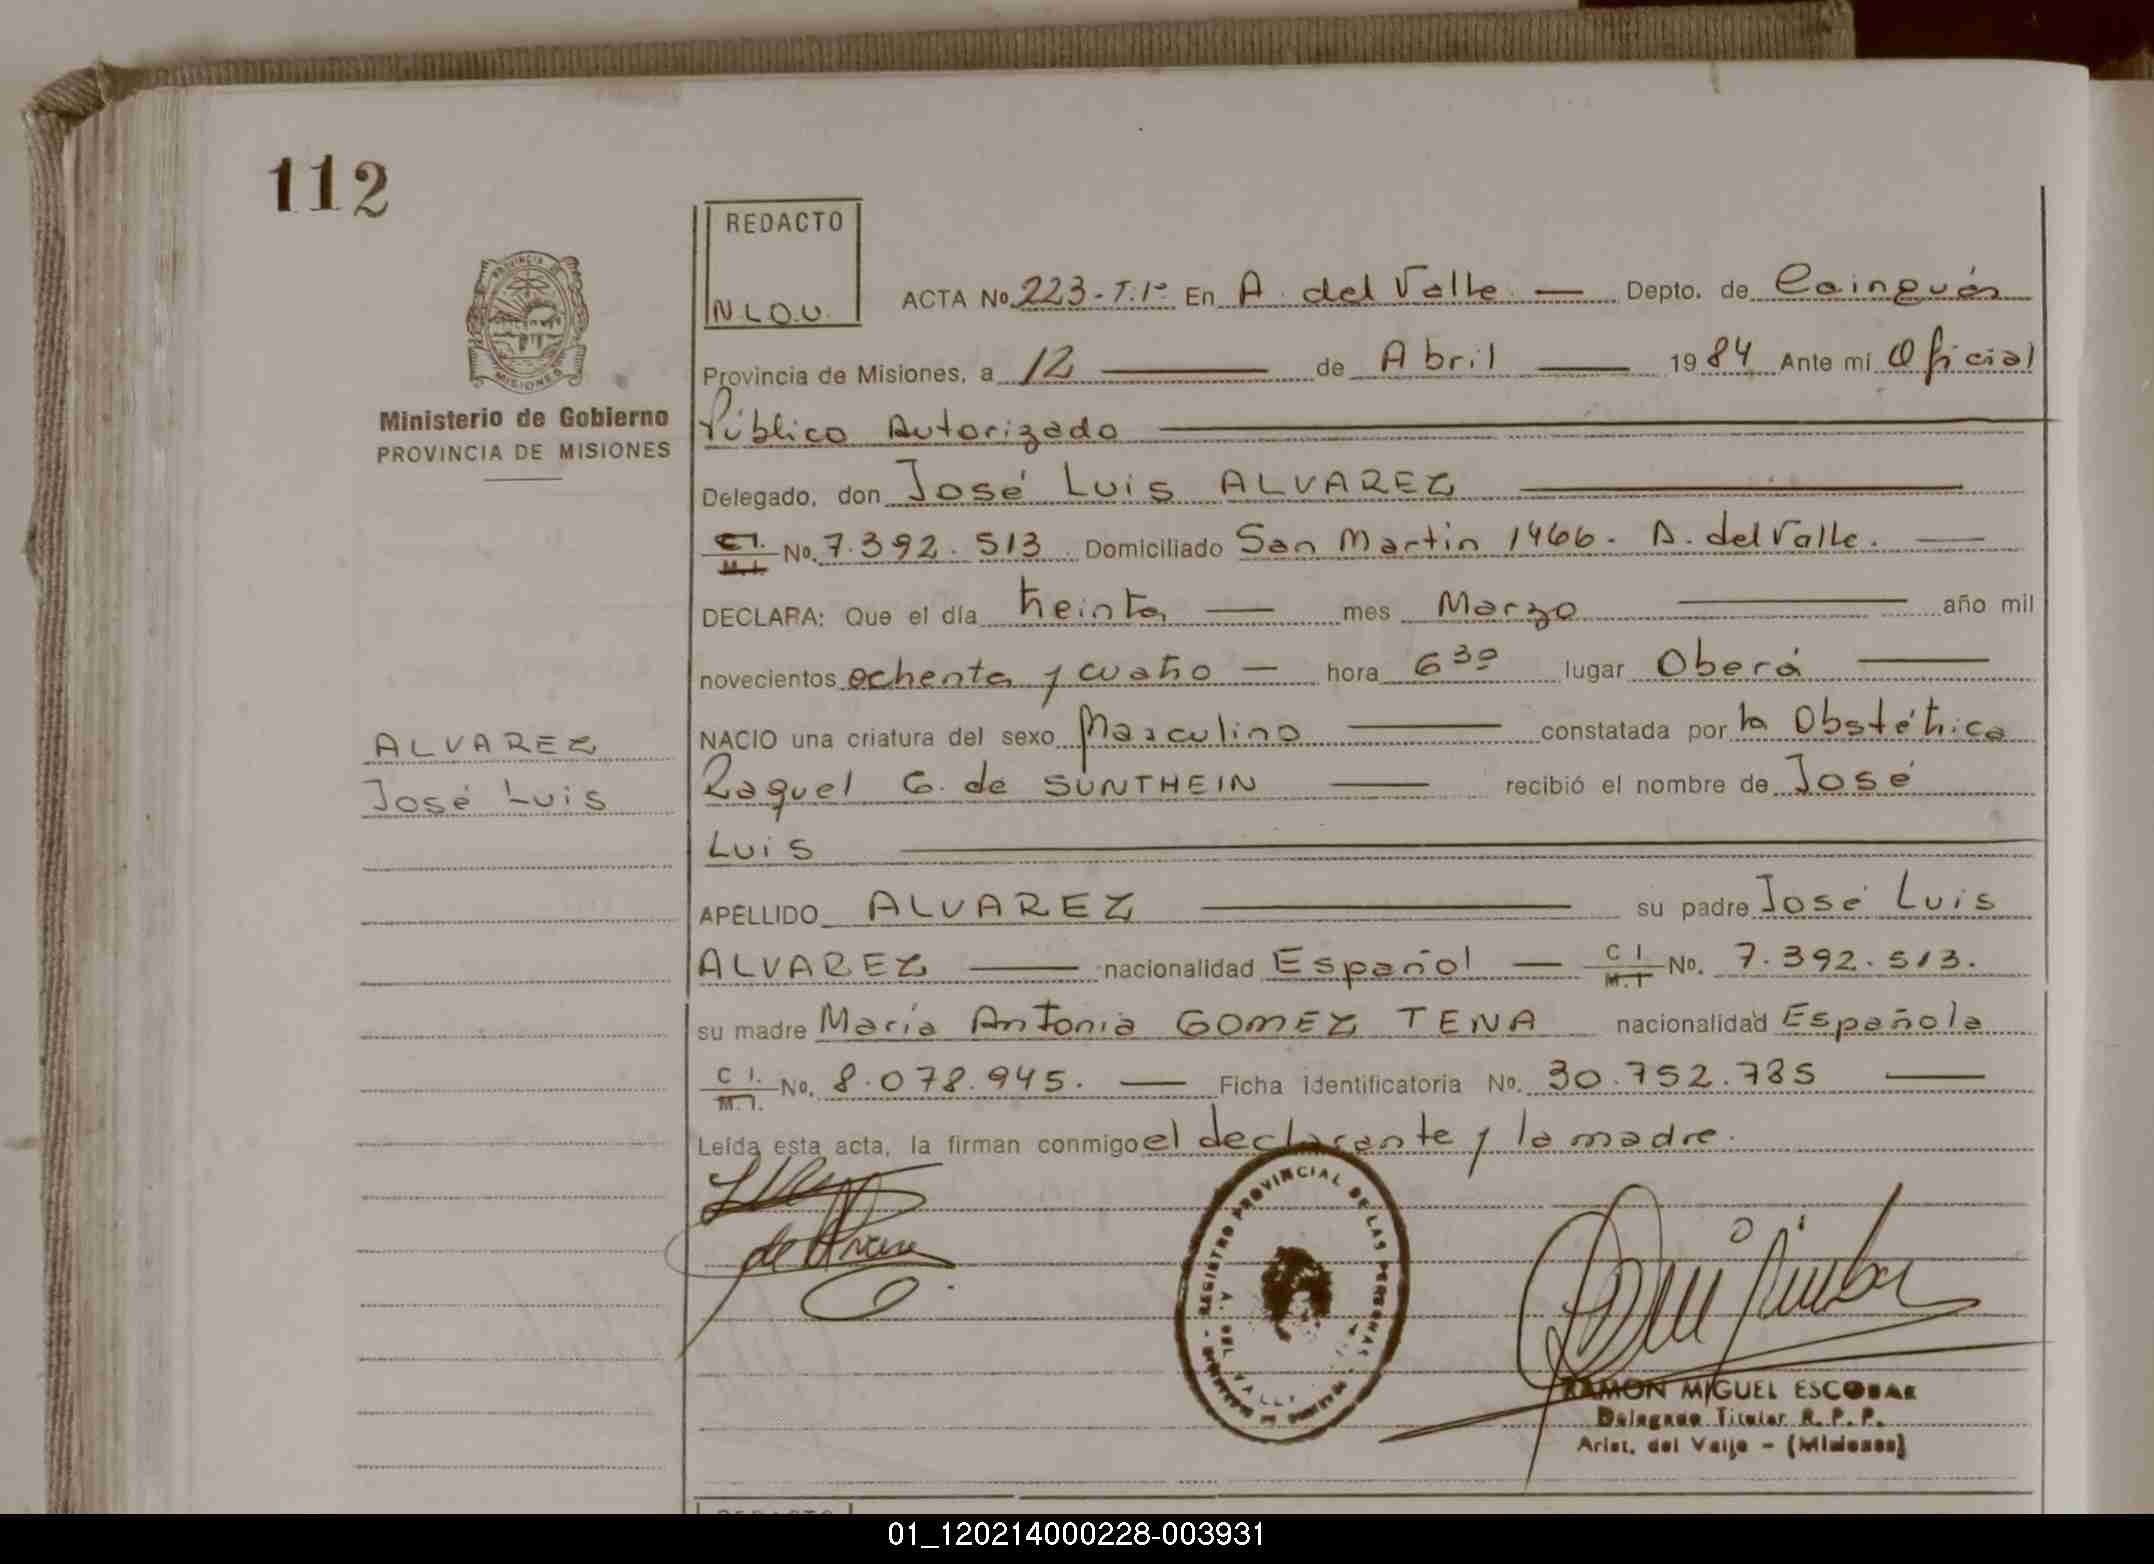 112
REDACTO
N L O.U.
PROVINCIA DE
MISIONES
Ministerio de Gobierno
PROVINCIA DE MISIONES
ACTA No. 223-T.1º En A. del Valle — Depto. de Cainguás
Provincia de Misiones, a 12 — de Abril — 1984 Ante mi Oficial
Público Autorizado —
Delegado, don José Luis ALVAREZ —
C.I. M.I. No. 7.392.513 Domiciliado San Martin 1466. A. del Valle. —
DECLARA: Que el día treinta — mes Marzo — año mil
novecientos ochenta y cuatro — hora 6 30 lugar Oberá —
NACIO una criatura del sexo Masculino — constatada por la Obstétrica
Raquel G. de SUNTHEIN — recibió el nombre de José
Luis —
ALVAREZ
José Luis
APELLIDO ALVAREZ — su padre José Luis
ALVAREZ — nacionalidad Español — C I M.I No. 7.392.513.
su madre María Antonia GOMEZ TENA nacionalidad Española
C I. M.I. No. 8.078.945. — Ficha identificatoria No. 30.752.785 —
Leída esta acta, la firman conmigo el declarante y la madre.
REGISTRO PROVINCIAL DE LAS PERSONAS
A. DEL VALLE
RAMON MIGUEL ESCOBAR
Delegado Titular R. P. P.
Arist. del Valle - (Misiones)
REDACTO
01_120214000228-003931